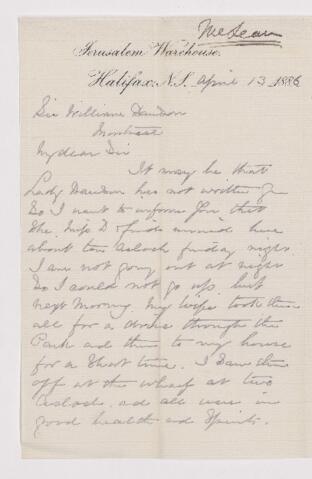 McLean
Jerusalem Warehouse.
Halifax, N.S. April 13 1886
Sir William Dawson
Montreal
My dear Sir
It may be that
Lady Dawson has not written you
So I want to inform you that
She, Miss D & friends arrived here
about ten oclock friday night.
I am not going out at night
So I could not go up but
next Morning My Wife took them
all for a drive through the
Park and then to my house
for a Short time. I Saw them
off at the wharf at two
oclock and all were in
good health and Spirits.